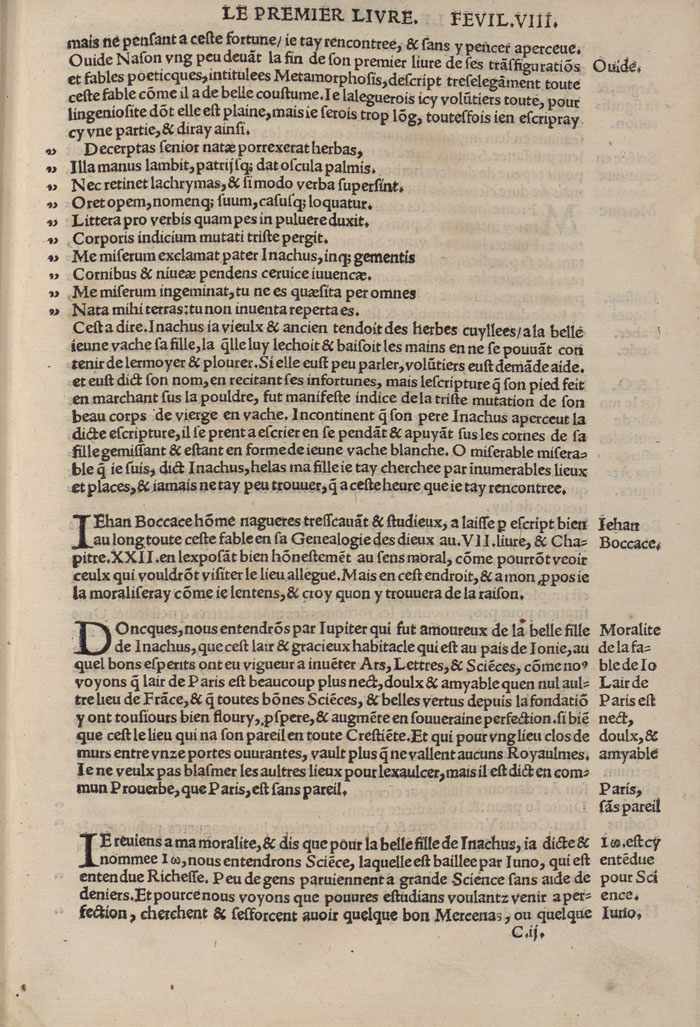 LE PREMIER LIVRE. FEVIL.VIII.
mais ne pensant a ceste fortune/ ie tay rencontree, & sans y pencer aperceue.
Ouide Nason vng peu deuãt la fin de son premier liure de ses trãsfiguratiõs
Ouide.
et fables poeticques, intitulees Metamorphosis, descript treselegãment toute
ceste fable cõme il a de belle coustume. Ie laleguerois icy volũtiers toute, pour
lingeniosite dõt elle est plaine, mais ie serois trop lõg, toutesfois ien escripray
cy vne partie, & diray ainsi.
„ Decerptas senior natæ porrexerat herbas,
„ Illa manus lambit, patrijsq; dat oscula palmis.
„ Nec retinet lachrymas, & si modo verba supersint.
„ Oret opem, nomenq; suum, casusq; loquatur.
„ Littera pro verbis quam pes in puluere duxit.
„ Corporis indicium mutati triste pergit.
„ Me miserum exclamat pater Inachus, inq; gementis
„ Cornibus & niueæ pendens ceruice iuuencæ.
„ Me miserum ingeminat, tu ne es quæsita per omnes
„ Nata mihi terras: tu non inuenta reperta es.
Cest a dire. Inachus ia vieulx & ancien tendoit des herbes cuyllees/ a la belle
ieune vache sa fille, la q̃lle luy lechoit & baisoit les mains en ne se pouuãt con
tenir de lermoyer & plourer. Si elle eust peu parler, volũtiers eust demãde aide.
et eust dict son nom, en recitant ses infortunes, mais lescripture q̃ son pied feit
en marchant sus la pouldre, fut manifeste indice de la triste mutation de son
beau corps de vierge en vache. Incontinent q̃ son pere Inachus aperceut la
dicte escripture, il se prent a escrier en se pendãt & apuyãt sus les cornes de sa
fille gemissant & estant en forme de ieune vache blanche. O miserable misera-
ble q̃ ie suis, dict Inachus, helas ma fille ie tay cherchee par inumerables lieux
et places, & iamais ne tay peu trouuer, q̃ a ceste heure que ie tay rencontree.
IEhan Boccace hõme nagueres tresscauãt & studieux, a laisse p escript bien
Iehan
au long toute ceste fable en sa Genealogie des dieux au. VII. liure, & Cha-
Boccace.
pitre. XXII. en lexposãt bien hõnestemẽt au sens moral, cõme pourrõt veoir
ceulx qui vouldrõt visiter le lieu allegue. Mais en cest endroit, & a mon ꝓpos ie
la moraliseray cõme ie lentens, & croy quon y trouuera de la raison.
DOncques, nous entendrõs par Iupiter qui fut amoureux de la belle fille
Moralite
de Inachus, que cest lair & gracieux habitacle qui est au pais de Ionie, au
de la fa-
quel bons esperits ont eu vigueur a inuẽter Ars, Lettres, & Sciẽces, cõme noꝰ
ble de Io
voyons q̃ lair de Paris est beaucoup plus nect, doulx & amyable quen nul aul-
Lair de
tre lieu de Frãce, & q̃ toutes bõnes Sciẽces, & belles vertus depuis la fondatiõ
Paris est
y ont tousiours bien floury, ꝓspere, & augmẽte en souueraine perfection. si biẽ
nect,
que cest le lieu qui na son pareil en toute Crestiẽte. Et qui pour vng lieu clos de
doulx, &
murs entre vnze portes ouurantes, vault plus q̃ ne vallent aucuns Royaulmes.
amyable
Ie ne veulx pas blasmer les aultres lieux pour lexaulcer, mais il est dict en com-
mun Prouerbe, que Paris, est sans pareil.
Paris,
sãs pareil
IE reuiens a ma moralite, & dis que pour la belle fille de Inachus, ia dicte &
Iω. est cy
nommee Iω, nous entendrons Sciẽce, laquelle est baillee par Iuno, qui est
entẽdue
entendue Richesse. Peu de gens paruiennent a grande Science sans aide de
pour Sci
deniers. Et pource nous voyons que pouures estudians voulantz venir a per-
ence.
fection, cherchent & sesforcent auoir quelque bon Mercenas, ou quelque
Iuno.
C.ij.